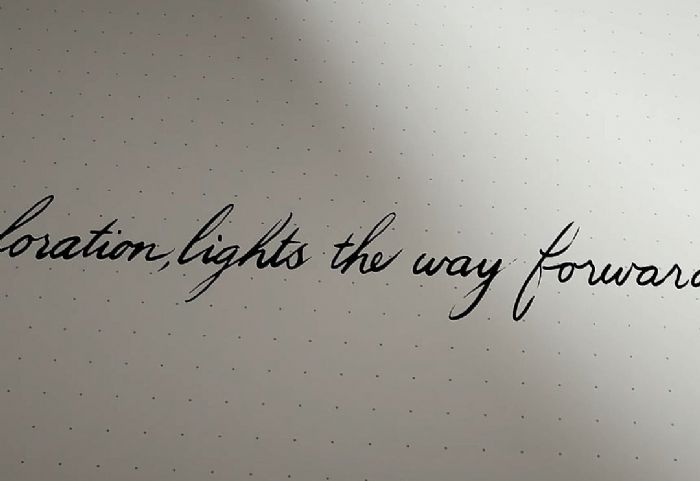 loration, lights the way forward